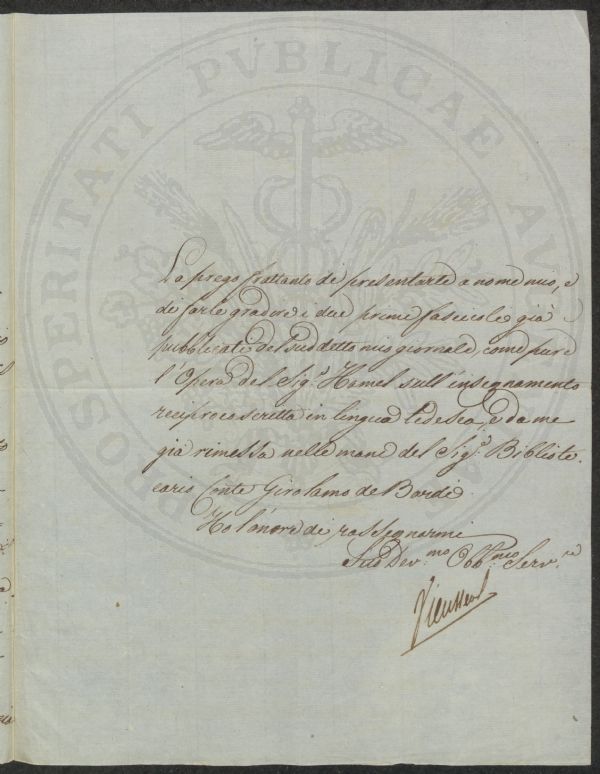 PROSPERITATI PVBLICAE AVGENDAE
La prego frattanto di presentarle a nome mio, e
di farle gradire i due primi fascicoli già
pubblicati del suddetto mio giornale, come pure
l'Opera del Sig.r Hamel sull'insegnamento
reciproco scritta in lingua tedesca, e da me
già rimessa nelle mani del Sig.r Bibliote,
cario Conte Girolamo de Bardi.
Ho l'onore di rassegnarmi
Suo Dev.mo Obb.mo Serv.re
Vieusseux